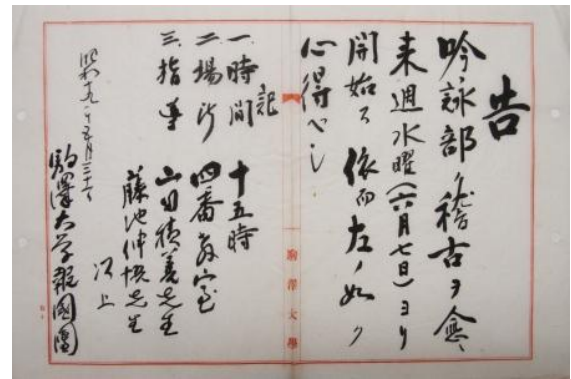 告
吟詠部ノ稽古ヲ愈々
来週水曜(六月七日)ヨリ
開始ス 依而左ノ如ク
心得ベシ
記
一、時間 十五時
二、場所 四番教室
三、指導 山田積善先生
藤池仲 先生
以上
昭和十九年五月三十一日
駒澤大学報國團
駒澤大學